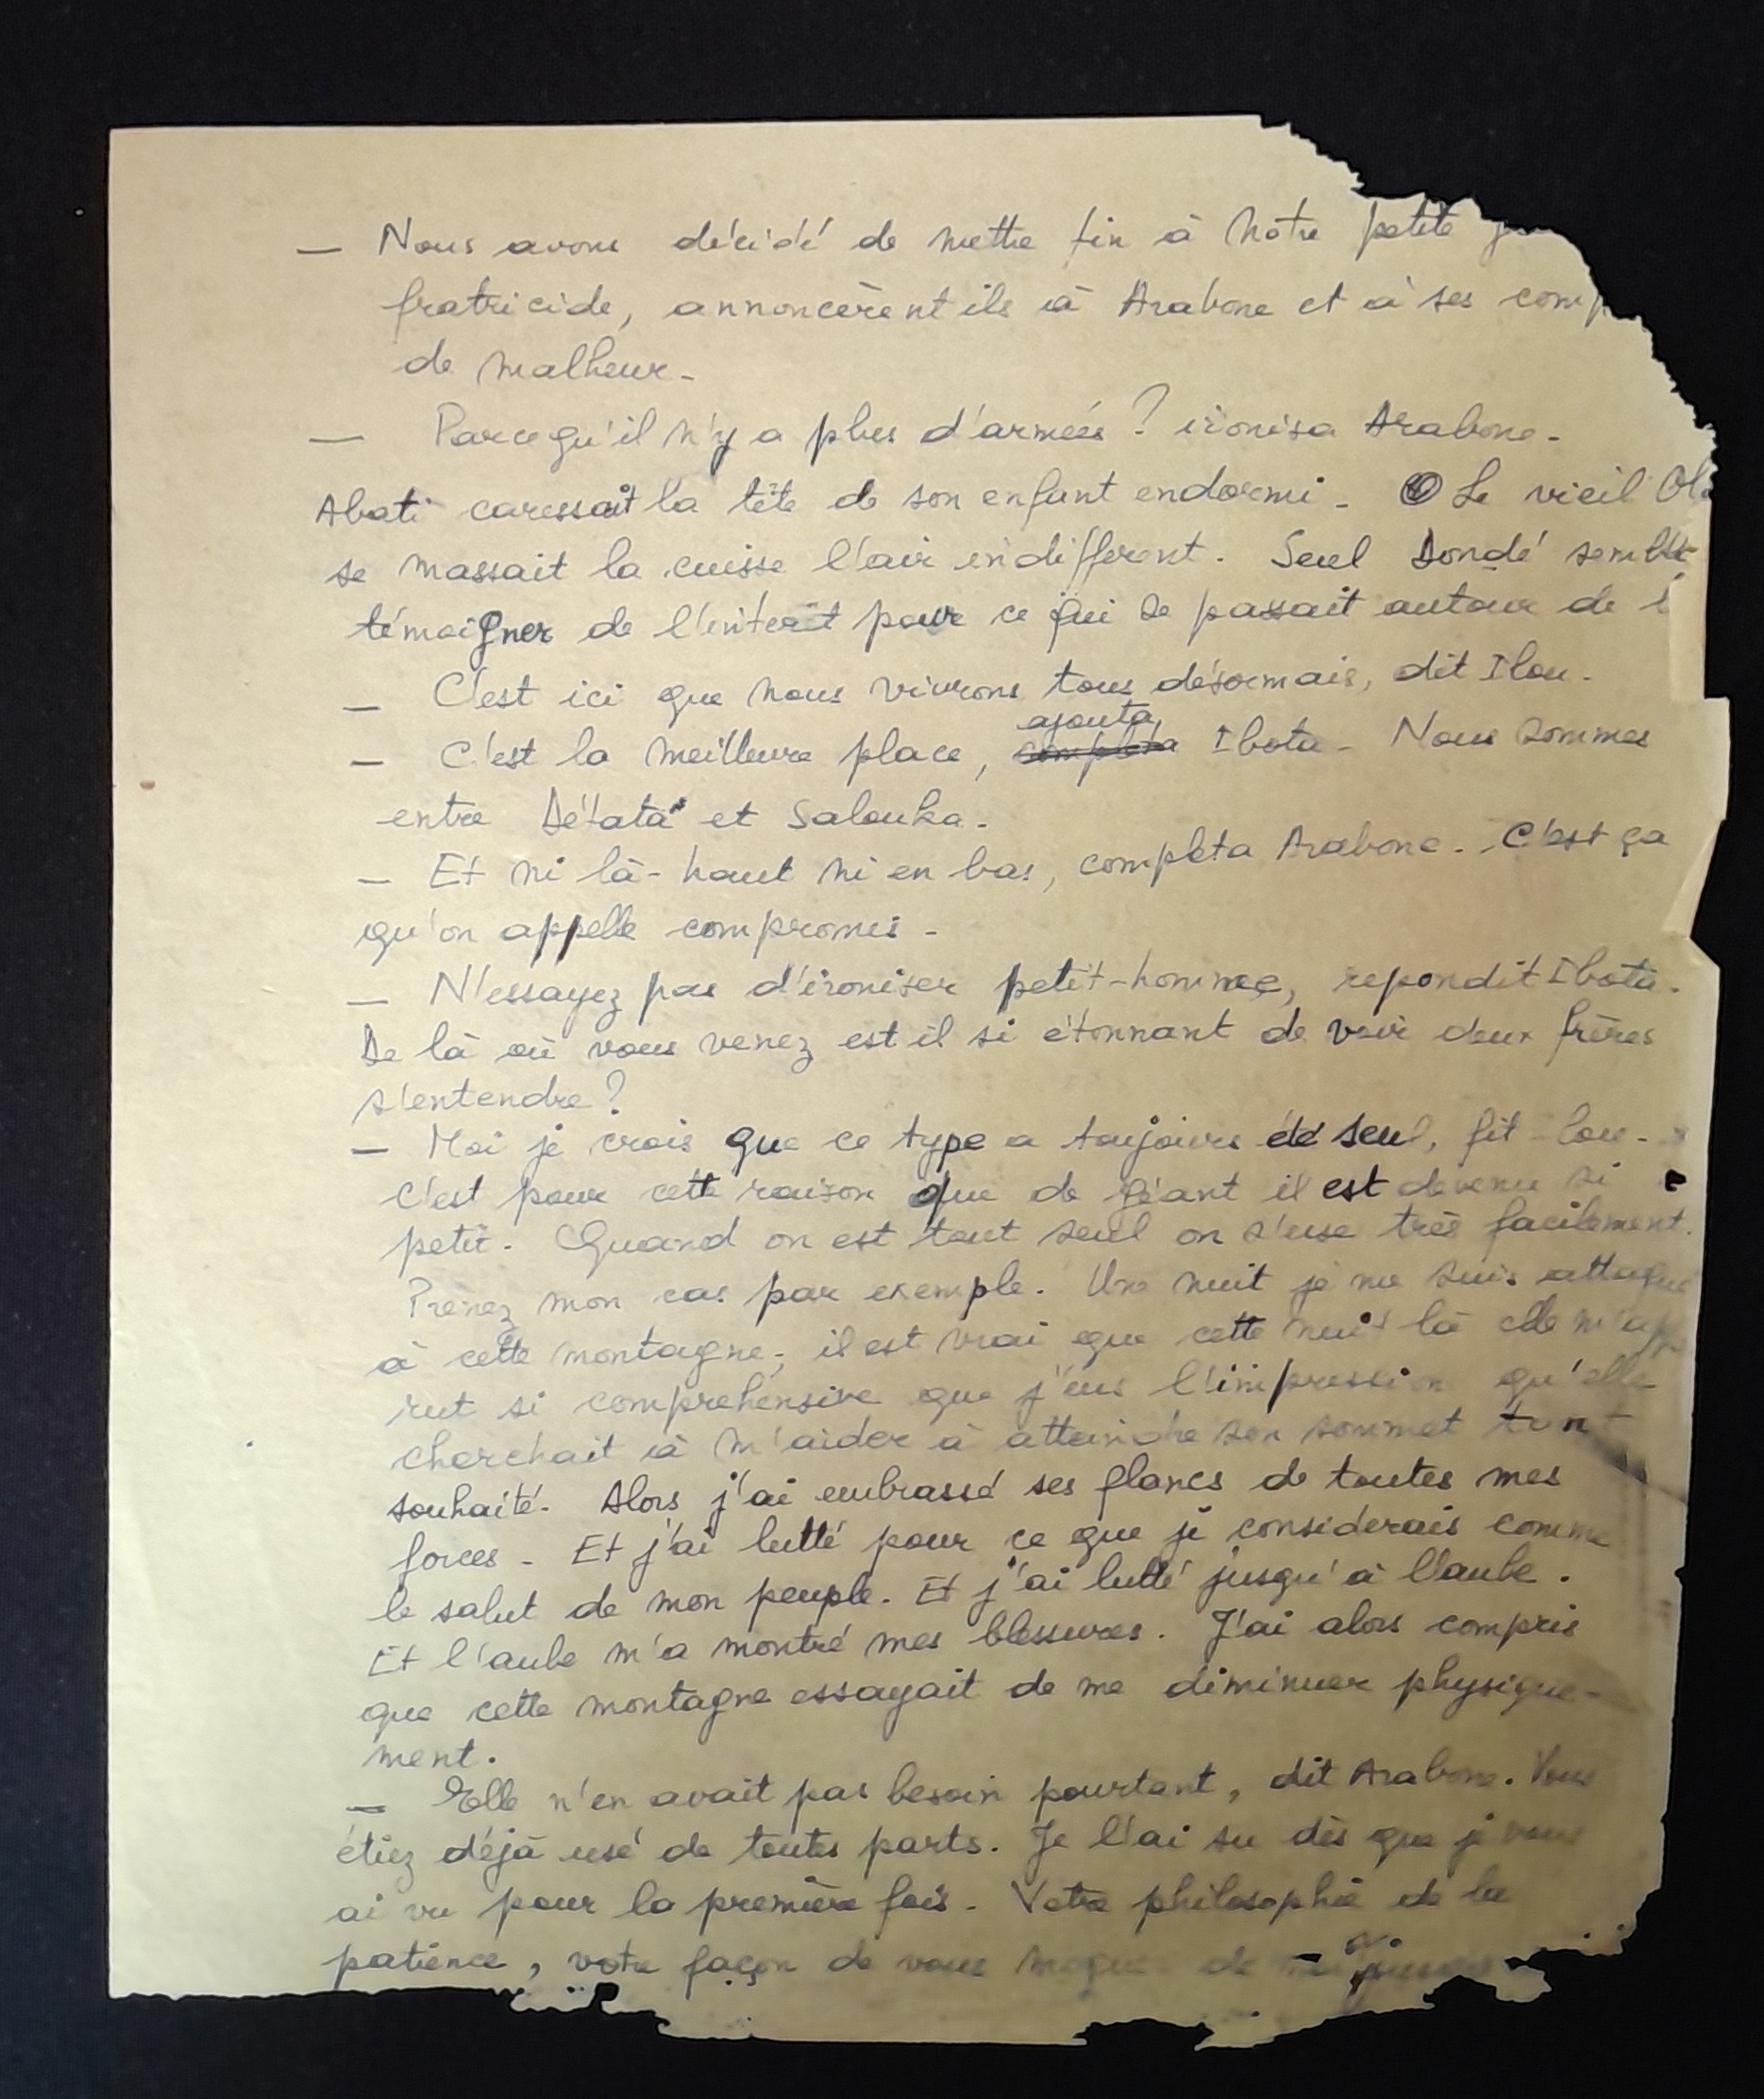 — Nous avons décidé de mettre fin à notre petite
fratricide, annoncèrent ils à Arabone et à ses comp
de malheur.
— Parcequ'il n'y a plus d'armées ? ironisa Arabone.
Abati caressait la tête de son enfant endormi. Le vieil
se massait la cuisse l'air indifferent. Seul Dondé semble
témoigner de l'interêt pour ce qui se passait autour de
— C'est ici que nous vivrons tous désormais, dit Ilou.
ajouta
— C'est la meilleure place, completa Ibota. Nous sommes
entre Détata et Salouka.
— Et ni là-haut ni en bas, completa Arabone. C'est ça
qu'on appelle compromis.
— N'essayez pas d'ironiser petit-homme, repondit Ibota.
De là où vous venez est il si étonnant de voir deux frères
s'entendre ?
— Moi je crois que ce type a toujours été seul, fit lou.
C'est pour cette raison que de géant il est devenu si
petit. Quand on est tout seul on s'use très facilement.
Prenez mon cas par exemple. Une nuit je me suis attaqué
à cette montagne; il est vrai que cette nuit là elle m'appa
rut si comprehénsive que j'eus l'impression qu'elle
cherchait à m'aider à atteindre son sommet tant
souhaité. Alors j'ai embrassé ses flancs de toutes mes
forces. Et j'ai lutté pour ce que je considerais comme
le salut de mon peuple. Et j'ai lutté jusqu'à l'aube.
Et l'aube m'a montré mes blessures. J'ai alors compris
que cette montagne essayait de me diminuer physique-
ment.
— Elle n'en avait pas besoin pourtant, dit Arabone. Vous
étiez déjà usé de toutes parts. Je l'ai su dès que je vous
ai vu pour la première fois. Votre philosophie de la
patience, votre façon de vous moquer de